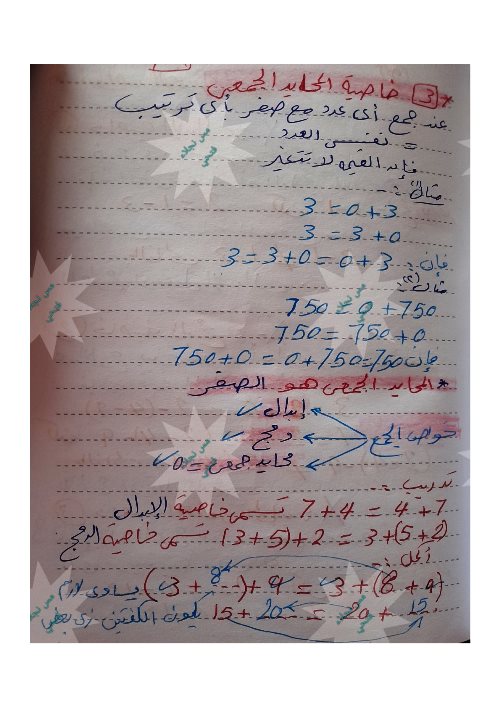 * [3] خاصية المحايد الجمعي
عند جمع أى عدد مع صفر بأى ترتيب
= نفس العدد
فإن القيمة لا تتغير
مثال (١) :-
3 = 0 + 3
3 = 3 + 0
فإن : 3 = 3 + 0 = 0 + 3
مثال (٢) :
750 = 0 + 750
750 = 750 + 0
فإن 750 + 0 = 0 + 750 = 750
* المحايد الجمعى هو الصفر
خواص الجمع
إبدال ✓
دمج ✓
محايد جمعى = 0 ✓
تدريب :-
7 + 4 = 4 + 7 تسمى خاصية الإبدال
(3 + 5) + 2 = 3 + (5 + 2) تسمى خاصية الدمج
أكمل :-
(3 + 8) + 4 = 3 + (8 + 4) يساوى لازم
15 + 20 = 20 + 15 يكون الكفتين زى بعض
مس نجلاء فتحي